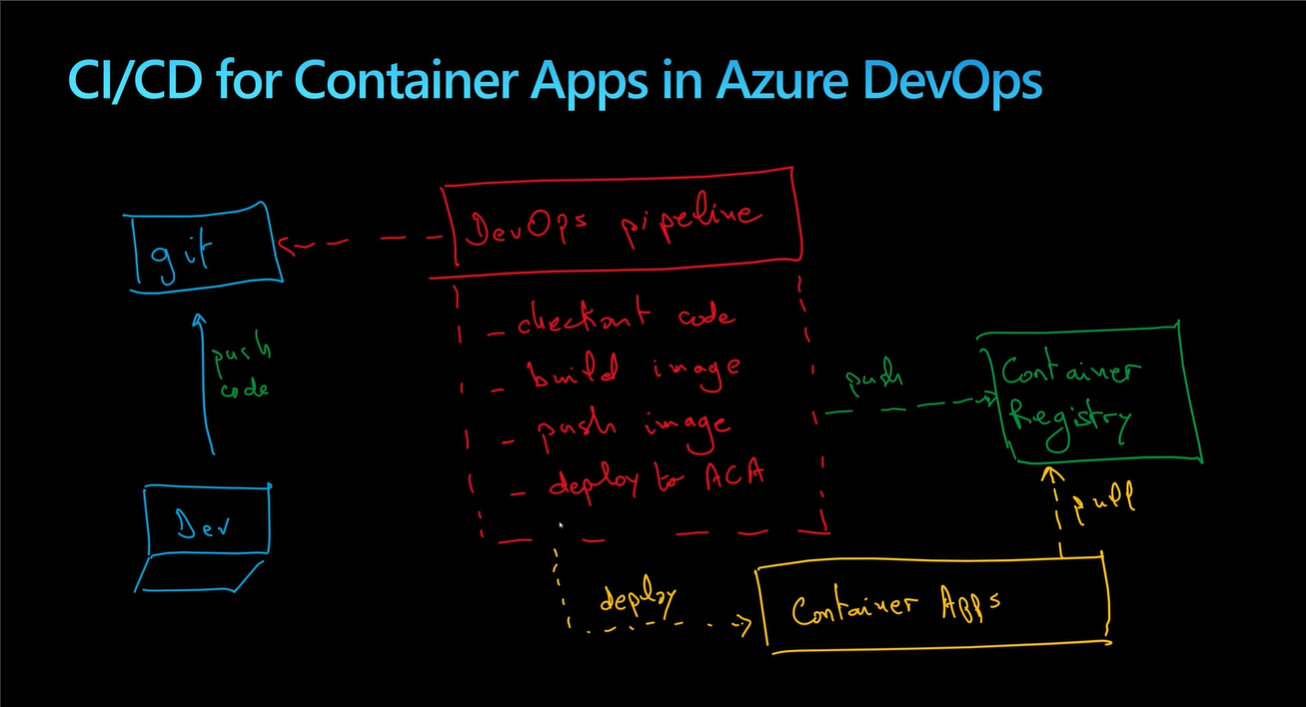 CI/CD for Container Apps in Azure DevOps
git
DevOps pipeline
- checkout code
- build image
- push image
- deploy to ACA
push
code
Dev
push
Container
Registry
pull
deploy
Container Apps